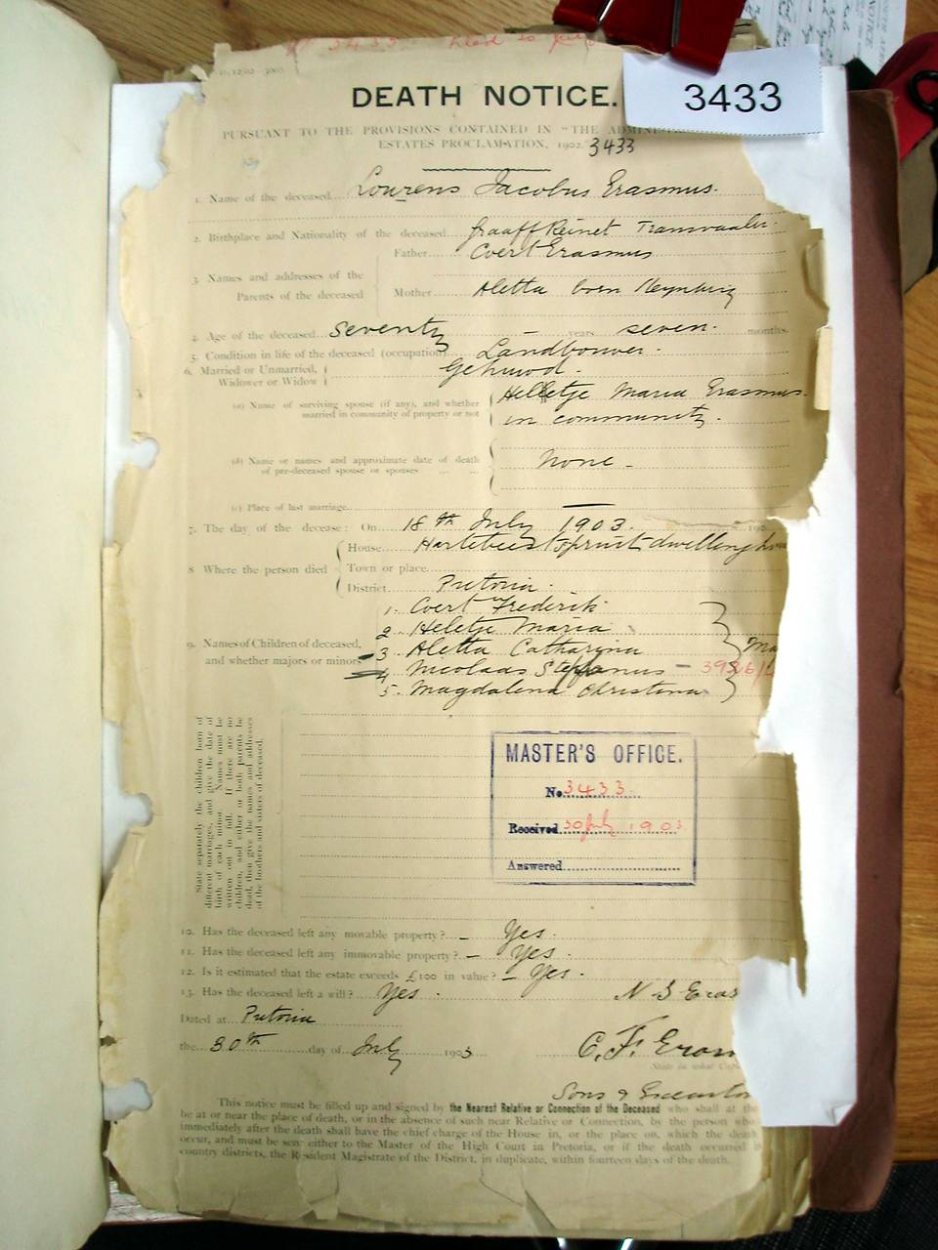 3433
DEATH NOTICE.
PURSUANT TO THE PROVISIONS CONTAINED IN "THE
ESTATES PROCLAMATION, 1902. 3433
1. Name of the deceased Lourens Jacobus Erasmus.
2. Birthplace and Nationality of the deceased Graaff Reinet Transvaaler.
3. Names and addresses of the Parents of the deceased
Father Coert Erasmus
Mother Aletta born
4. Age of the deceased Seventy - years seven. months.
5. Condition in life of the deceased (occupation) Landbouwer.
6. Married or Unmarried, Widower or Widow Gehuwd.
(a) Name of surviving spouse (if any), and whether married in community of property or not Helletje Maria Erasmus in community.
(b) Name or names and approximate date of death of pre-deceased spouse or spouses None -
(c) Place of last marriage
7. The day of the decease: On 18th July 1903. 190
8. Where the person died
House Hartebeestspruit dwelling
Town or place
District Pretoria.
9. Names of Children of deceased, and whether majors or minors
1. Coert Frederik
2. Heletje Maria
3 Aletta Catharyna
4 Nicolaas Stefanus -
5. Magdalena Christina
State separately the children born of
different marriages, and give the date of
birth of each minor. Names must be
written out in full. If there are no
children, and either or both parents be
dead, then give the names and addresses
of the brothers and sisters of deceased.
MASTER'S OFFICE.
No. 3433
Received 30 July 1903
Answered
10. Has the deceased left any movable property? - Yes.
11. Has the deceased left any immovable property? - Yes.
12. Is it estimated that the estate exceeds £100 in value? - Yes.
13. Has the deceased left a will? Yes.
N S Eras
Dated at Pretoria
the 30th day of July 1903
C. F. Erasm
Sons &
This notice must be filled up and signed by the Nearest Relative or Connection of the Deceased who shall at the
be at or near the place of death, or in the absence of such near Relative or Connection, by the person who
immediately after the death shall have the chief charge of the House in, or the place on, which the death
occur, and must be sent either to the Master of the High Court in Pretoria, or if the death occurred
country districts, the Resident Magistrate of the District, in duplicate, within fourteen days of the death.